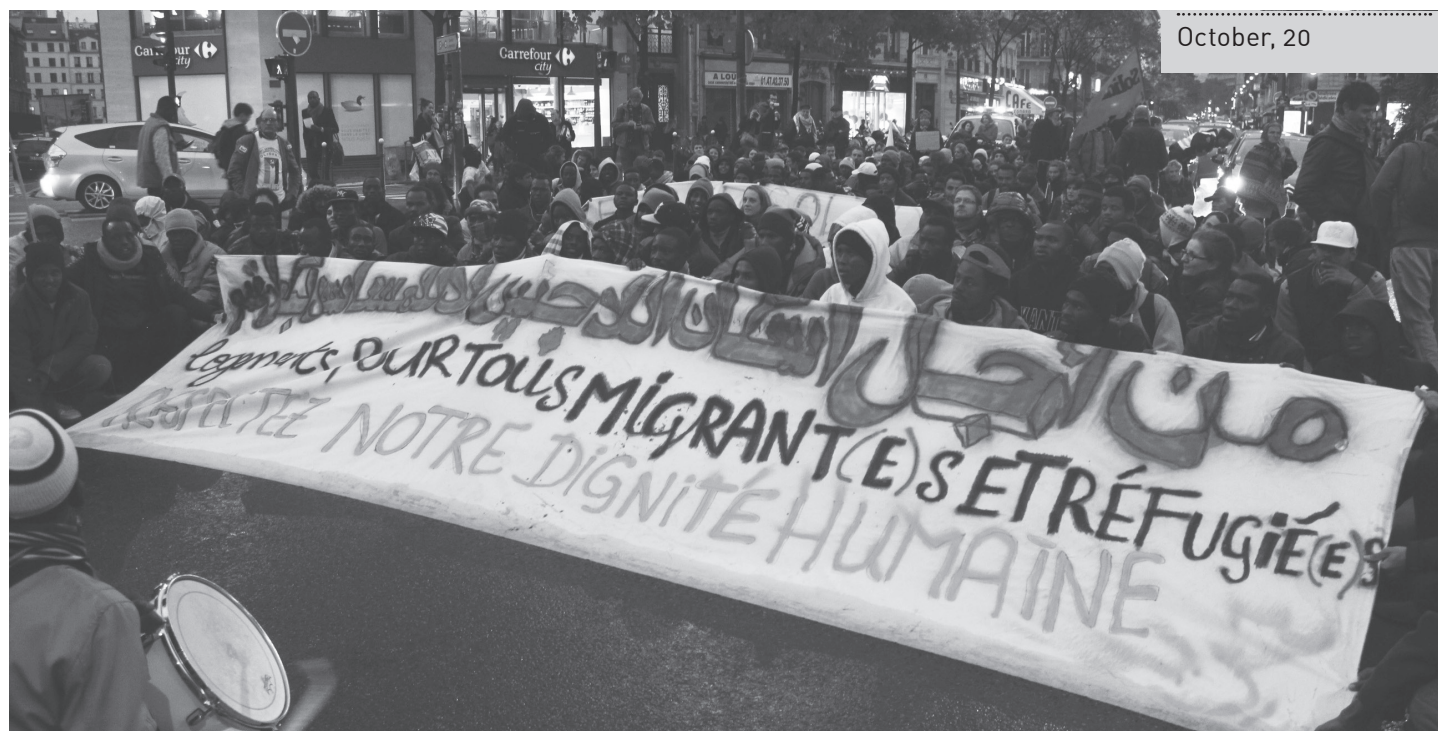 October, 20
Carrefour
city
Carrefour
city
A LOU
CAFE
من أجل اسكان اللاجئين
logements, POUR TOUS MiGRANT(E)S ET RÉFUGiÉ(E)S
RESPECTEZ NOTRE DiGNiTÉ HUMAiNE